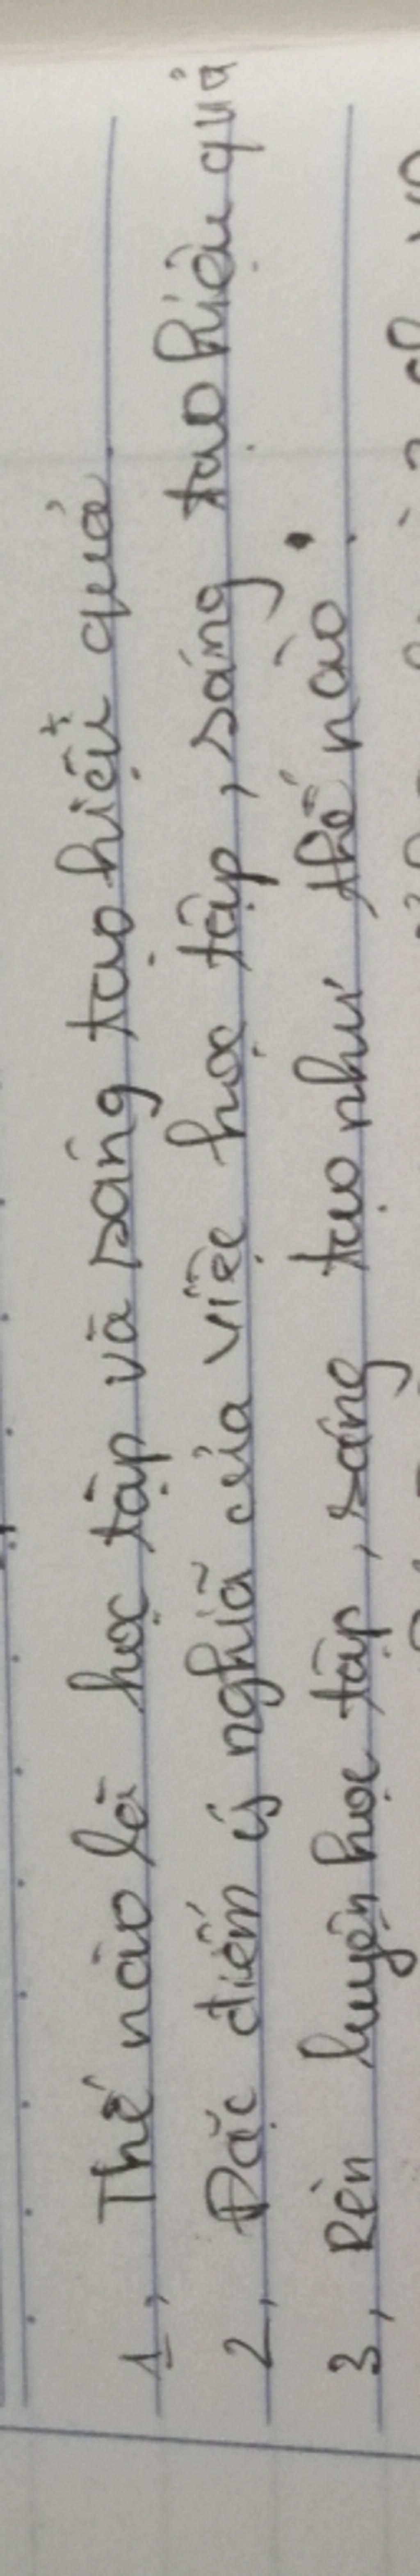 1, Thế nào là học tập và sáng tạo hiệu quả.
2, Đặc điểm ý nghĩa của việc học tập, sáng tạo hiệu quả
3, Rèn luyện học tập, sáng tạo như thế nào.